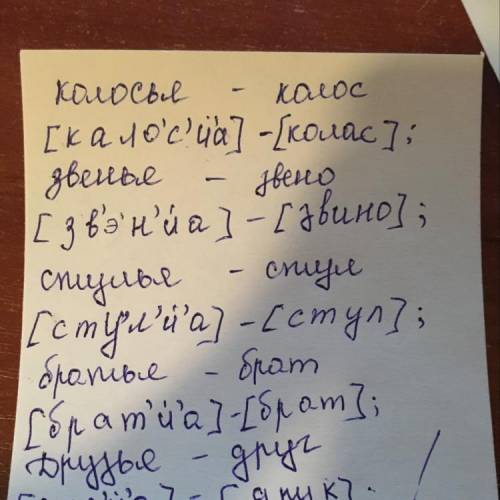 колосья - колос
[кало'с'й'а] - [колас];
звенья - звено
[зв'э'н'й'а] - [звино];
стулья - стул
[сту'л'й'а] - [стул];
братья - брат
[брат'й'а] - [брат];
Друзья - друг